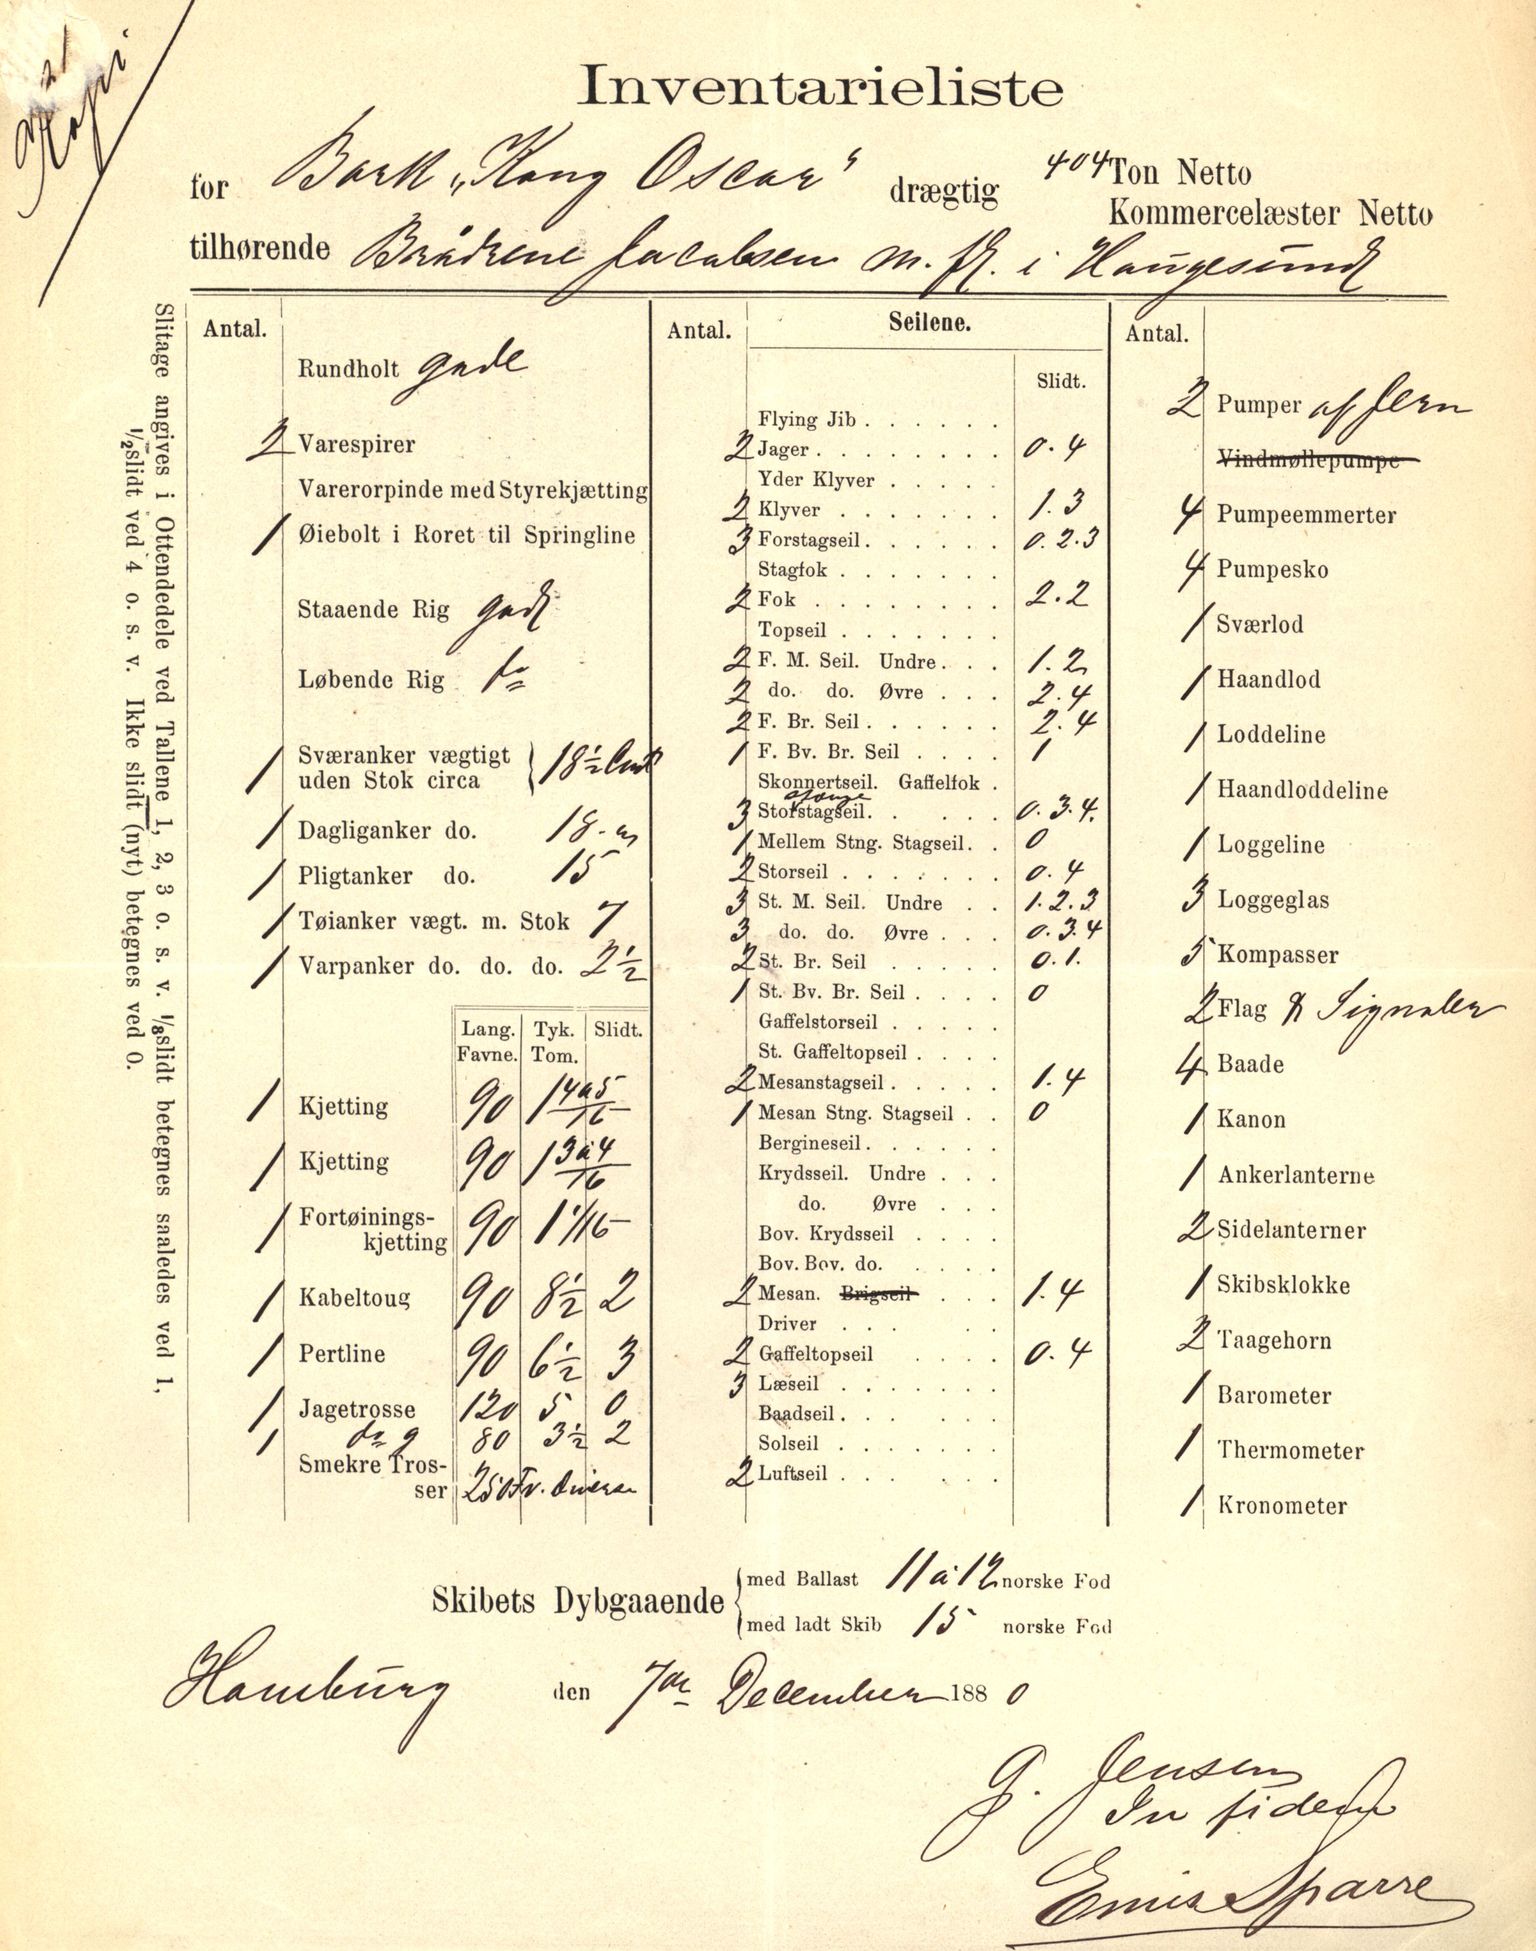 Kopi
Inventarieliste
for Bark „Kong Oscar“ drægtig 404 Ton Netto
Kommercelæster Netto
tilhørende Brødrene Jacobsen m. fl. i Haugesund
Slitage angives i Ottendedele ved Tallene 1, 2, 3 o. s. v. 1/8 slidt betegnes saaledes ved 1,
1/2 slidt ved 4 o. s. v. Ikke slidt (nyt) betegnes ved 0.
Antal.
Rundholt gode
2 Varespirer
Varerorpinde med Styrekjætting
1 Øiebolt i Roret til Springline
Staaende Rig godt
Løbende Rig do
1 Sværanker vægtigt
uden Stok circa } 18 1/2 Cent
1 Dagliganker do. 18 - "
1 Pligtanker do. 15
1 Tøianker vægt. m. Stok 7
1 Varpanker do. do. do. 2 1/2
Lang. Tyk. Slidt.
Favne. Tom.
1 Kjetting 90 1 4 a 5/16
1 Kjetting 90 1 3 a 4/16
1 Fortøinings-
kjetting 90 1 1/16
1 Kabeltoug 90 8 1/2 2
1 Pertline 90 6 1/2 3
1 Jagetrosse 120 5 0
1 do 80 3 1/2 2
Smekre Tros-
ser 250 Fv. diverse
Antal. Seilene.
Slidt.
Flying Jib . . . . . .
2 Jager . . . . . . . . 0. 4
Yder Klyver . . . . .
2 Klyver . . . . . . . 1. 3
3 Forstagseil . . . . . . 0. 2. 3
Stagfok . . . . . . .
2 Fok . . . . . . . . 2. 2
Topseil . . . . . . .
2 F. M. Seil. Undre . . . 1. 2
2 do. do. Øvre . . . 2. 4
2 F. Br. Seil . . . . . . 2. 4
1 F. Bv. Br. Seil . . . . 1
Skonnertseil. Gaffelfok .
stænge
3 Storstagseil . . . . . 0. 3. 4.
1 Mellem Stng. Stagseil . . 0
2 Storseil . . . . . . . 0. 4
3 St. M. Seil. Undre . . 1. 2. 3
3 do. do. Øvre . . . 0. 3. 4
2 St. Br. Seil . . . . . 0. 1.
1 St. Bv. Br. Seil . . . . 0
Gaffelstorseil . . . . .
St. Gaffeltopseil . . . .
2 Mesanstagseil . . . . . 1. 4
1 Mesan Stng. Stagseil . . 0
Bergineseil . . . . . .
Krydsseil. Undre . . .
do. Øvre . . .
Bov. Krydsseil . . . .
Bov. Bov. do. . . . .
2 Mesan. Brigseil . . . 1. 4
Driver . . . . .
2 Gaffeltopseil . . . . 0. 4
3 Læseil . . . . . . .
Baadseil . . . . . .
Solseil . . . . . . .
2 Luftseil . . . . . .
Antal.
2 Pumper af Jern
Vindmøllepumpe
4 Pumpeemmerter
4 Pumpesko
1 Sværlod
1 Haandlod
1 Loddeline
1 Haandloddeline
1 Loggeline
3 Loggeglas
5 Kompasser
2 Flag & Signaler
4 Baade
1 Kanon
1 Ankerlanterne
2 Sidelanterner
1 Skibsklokke
2 Taagehorn
1 Barometer
1 Thermometer
1 Kronometer
Skibets Dybgaaende { med Ballast 11 a 12 norske Fod
med ladt Skib 15 norske Fod
Hamburg den 7de December 1880
G. Jensen
In fidem
Emil Sparre